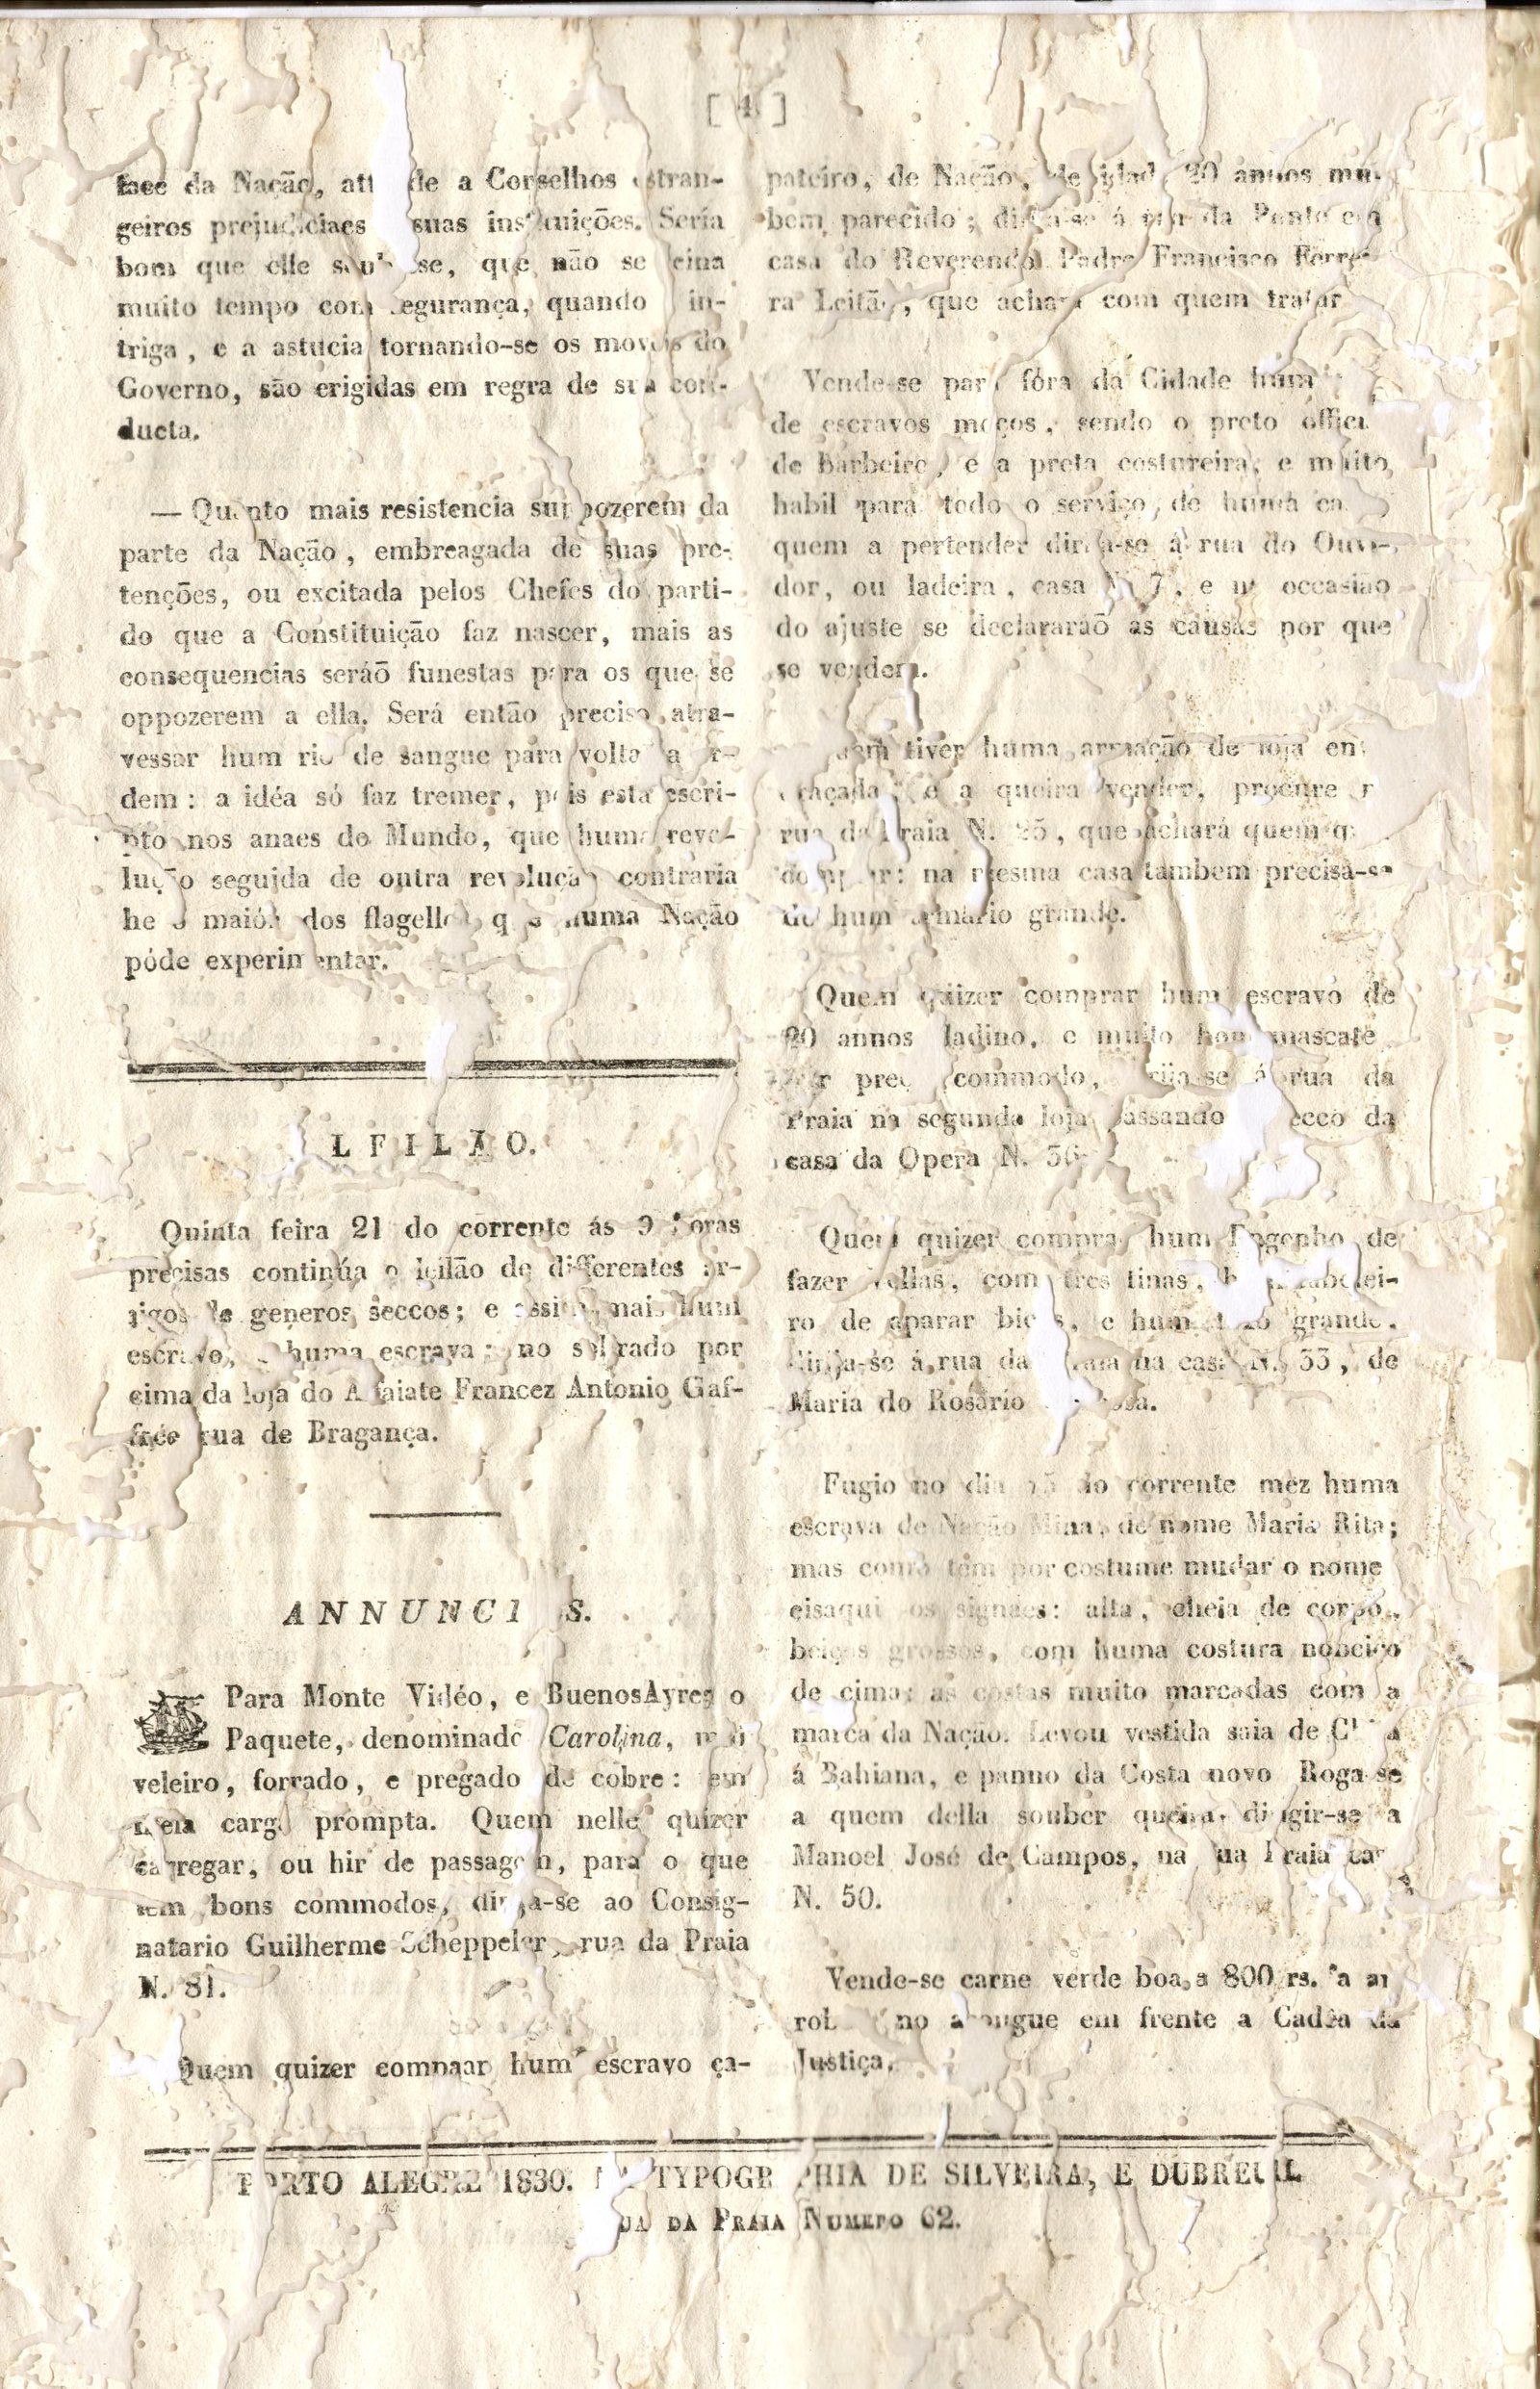 [ 4 ]
da Nação, a Conselhos estran-
geiros prejudiciaes suas instituições. Sería
bom que elle se, que não se
muito tempo com segurança, quando in-
triga, e a astucia tornando-se os moveis do
Governo, são erigidas em regra de sua con-
ducta.
— Quanto mais resistencia suppozerem da
parte da Nação, embreagada de suas pre-
tenções, ou excitada pelos Chefes do parti-
do que a Constituição faz nascer, mais as
consequencias seráõ funestas para os que se
oppozerem a ella. Será então preciso atra-
vessar hum rio de sangue para volta a
dem: a idéa só faz tremer, pois esta escri-
pto nos anaes do Mundo, que huma revo-
lução seguida de outra revolução contraria
he o maiór dos flagellos que huma Nação
póde experimentar.
LEILÃO.
Quinta feira 21 do corrente ás 9 horas
precisas continúa o leilão de differentes ar-
tigos de generos seccos; e assim mais hum
escravo, huma escrava: no sobrado por
cima da loja do Alfaiate Francez Antonio Gaf-
frée rua de Bragança.
ANNUNCIOS.
Para Monte Vidéo, e BuenosAyres o
Paquete, denominado Carolina, mui
veleiro, forrado, e pregado de cobre: em
meia carga prompta. Quem nelle quizer
carregar, ou hir de passagem, para o que
tem bons commodos, dirija-se ao Consig-
natario Guilherme Scheppeler, rua da Praia
N. 81.
Quem quizer compaar hum escravo ça-
pateiro, de Nação, de idade 20 annos mui
bem parecido; dirija-se á rua da Ponte em
casa do Reverendo Padre Francisco Ferrei-
ra Leitão, que achará com quem tratar
Vende-se para fóra da Cidade hum
de escravos moços, sendo o preto offici
de Barbeiro, e a preta costureira, e muito
habil para todo o serviço de huma ca
quem a pertender dirija-se á rua do Ouvi-
dor, ou ladeira, casa N. 7, e na occasião
do ajuste se declararáõ as causas por que
se vendem.
Quem tiver huma armação de loja
e a queira vender, procure
rua da Praia N. 25, que achará quem
comprar: na mesma casa tambem precisa-se
de hum armario grande.
Quem quizer comprar hum escravo de
20 annos ladino, e muito bom mascate
por preço commodo, dirija-se á rua da
Praia na segunda loja passando becco da
casa da Opera N.
Quem quizer comprar hum Engenho de
fazer vellas, com tres tinas, taboei-
ro de aparar bicos, e hum grande,
dirija-se á rua da Praia na casa N. 33, de
Maria do Rosario
Fugio no dia 15 do corrente mez huma
escrava de Nação Mina, de nome Maria Rita;
mas como tem por costume mudar o nome
eisaqui os signaes: alta, cheia de corpo,
beiços grossos, com huma costura nobeiço
de cima; as costas muito marcadas com a
marca da Nação. Levou vestida saia de Chita
á Bahiana, e panno da Costa novo Roga-se
a quem della souber queira dirigir-se a
Manoel José de Campos, na rua Praia
N. 50.
Vende-se carne verde boa, a 800 rs. a ar
roba no açougue em frente a Cadêa da
Justiça.
PORTO ALEGRE 1830. NA TYPOGRAPHIA DE SILVEIRA, E DUBREUIL
RUA DA PRAIA NUMERO 62.